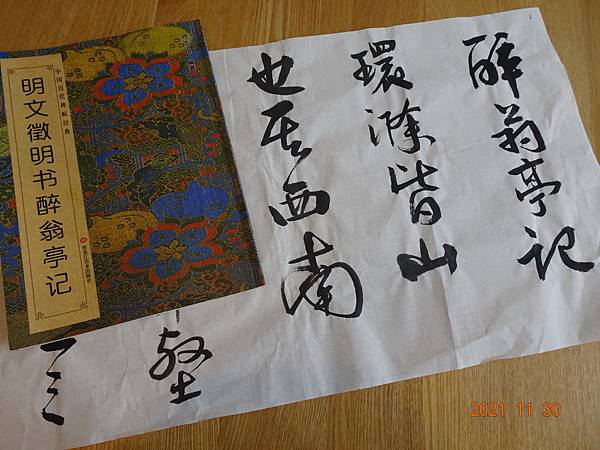 醉翁亭记
環滁皆山
也其西南
壑
中国历代碑帖经典
明文徵明书醉翁亭记
2021 11 30